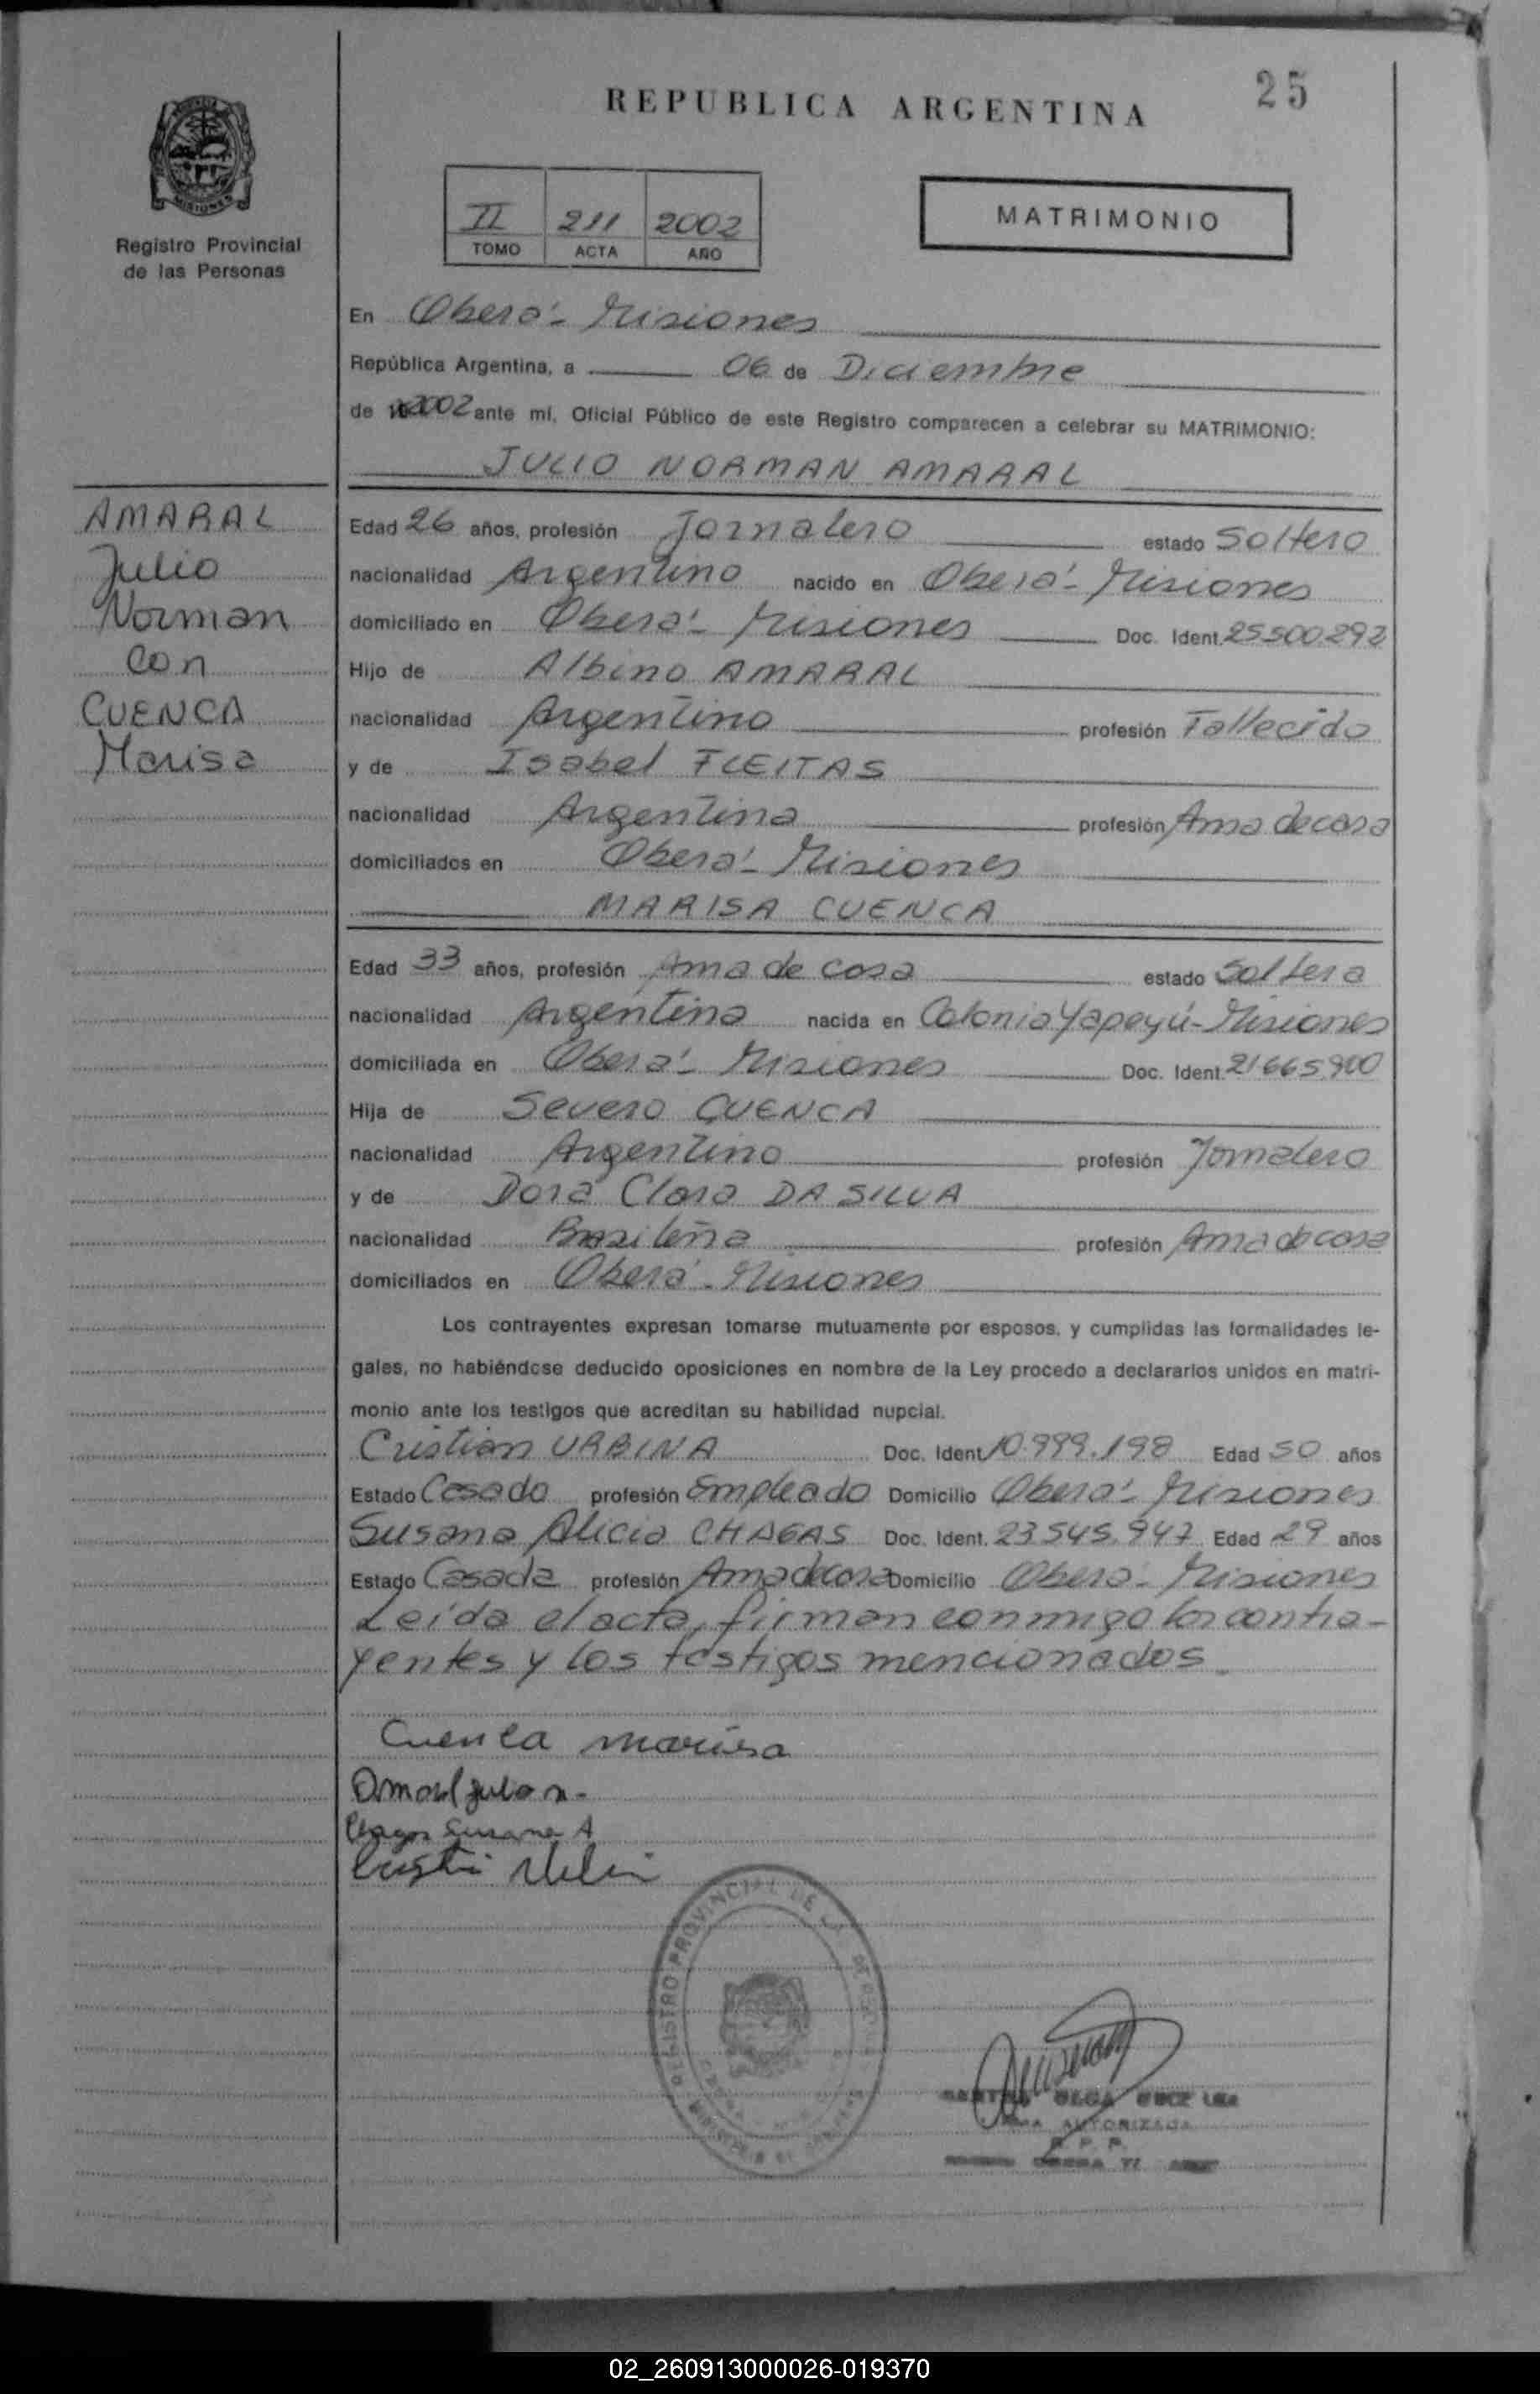 REPUBLICA ARGENTINA
25
MISIONES
Registro Provincial
de las Personas
II 211 2002
TOMO ACTA AÑO
MATRIMONIO
En Oberá - Misiones
República Argentina, a 06 de Diciembre
de 2002 ante mí, Oficial Público de este Registro comparecen a celebrar su MATRIMONIO:
JULIO NORMAN AMARAL
AMARAL
Julio
Norman
con
CUENCA
Marisa
Edad 26 años, profesión Jornalero estado Soltero
nacionalidad Argentino nacido en Oberá - Misiones
domiciliado en Oberá - Misiones Doc. Ident. 25500.292
Hijo de Albino AMARAL
nacionalidad Argentino profesión Fallecido
y de Isabel FLEITAS
nacionalidad Argentina profesión Ama de casa
domiciliados en Oberá - Misiones
MARISA CUENCA
Edad 33 años, profesión Ama de casa estado Soltera
nacionalidad Argentina nacida en Colonia Yapeyú - Misiones
domiciliada en Oberá - Misiones Doc. Ident. 21665.900
Hija de Severo CUENCA
nacionalidad Argentino profesión Jornalero
y de Dora Clara DA SILVA
nacionalidad Brasileña profesión Ama de casa
domiciliados en Oberá - Misiones
Los contrayentes expresan tomarse mutuamente por esposos, y cumplidas las formalidades le-
gales, no habiéndose deducido oposiciones en nombre de la Ley procedo a declararlos unidos en matri-
monio ante los testigos que acreditan su habilidad nupcial.
Cristian URBINA Doc. Ident. 10.999.198 Edad 50 años
Estado Casado profesión Empleado Domicilio Oberá - Misiones
Susana Alicia CHAGAS Doc. Ident. 23545.947 Edad 29 años
Estado Casada profesión Ama de casa Domicilio Oberá - Misiones
Leída el acta, firman conmigo los contra-
yentes y los testigos mencionados.
Cuenca marisa
Amaral Julio n.
Chagas Susana A
REGISTRO PROVINCIAL DE LAS
OLGA
AUTORIZADA
R. P. P.
02_260913000026-019370